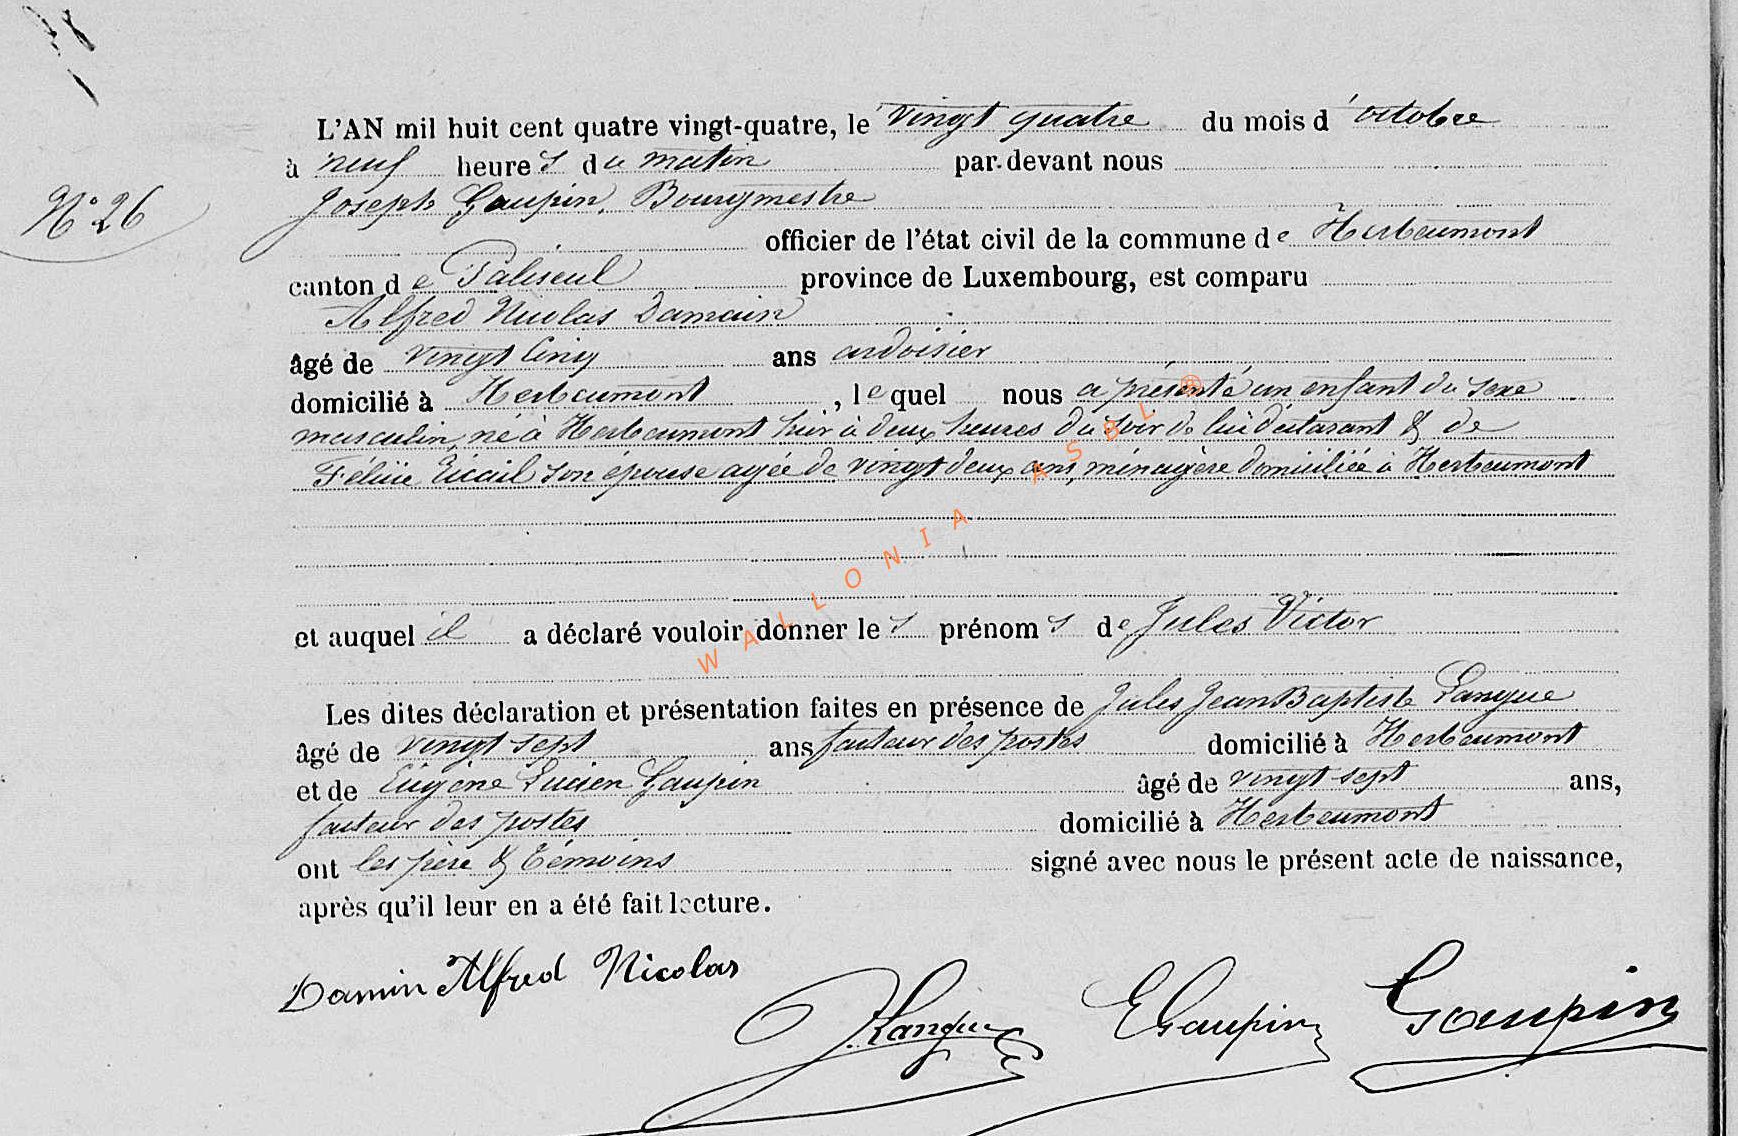 L'AN mil huit cent quatre vingt-quatre, le vingt quatre du mois d'octobre
à neuf heures du matin par-devant nous
N° 26
Joseph Gaupin, Bourgmestre
officier de l'état civil de la commune de Herbeumont
canton de Paliseul province de Luxembourg, est comparu
Alfred Nicolas Damain
âgé de vingt cinq ans ardoisier
domicilié à Herbeumont, lequel nous a présenté un enfant du sexe
masculin, né à Herbeumont hier à deux heures du soir de lui déclarant & de
Félicie Eicail son épouse agée de vingt deux ans, ménagère domiciliée à Herbeumont
WALLONIA ASBL ®
et auquel il a déclaré vouloir donner les prénoms de Jules Victor
Les dites déclaration et présentation faites en présence de Jules Jean Baptiste Langue
âgé de vingt sept ans facteur des postes domicilié à Herbeumont
et de Eugène Lucien Gaupin âgé de vingt sept ans,
facteur des postes domicilié à Herbeumont
ont les père & témoins signé avec nous le présent acte de naissance,
après qu'il leur en a été fait lecture.
Damin Alfred Nicolas
J. Langue EGaupin Gaupin